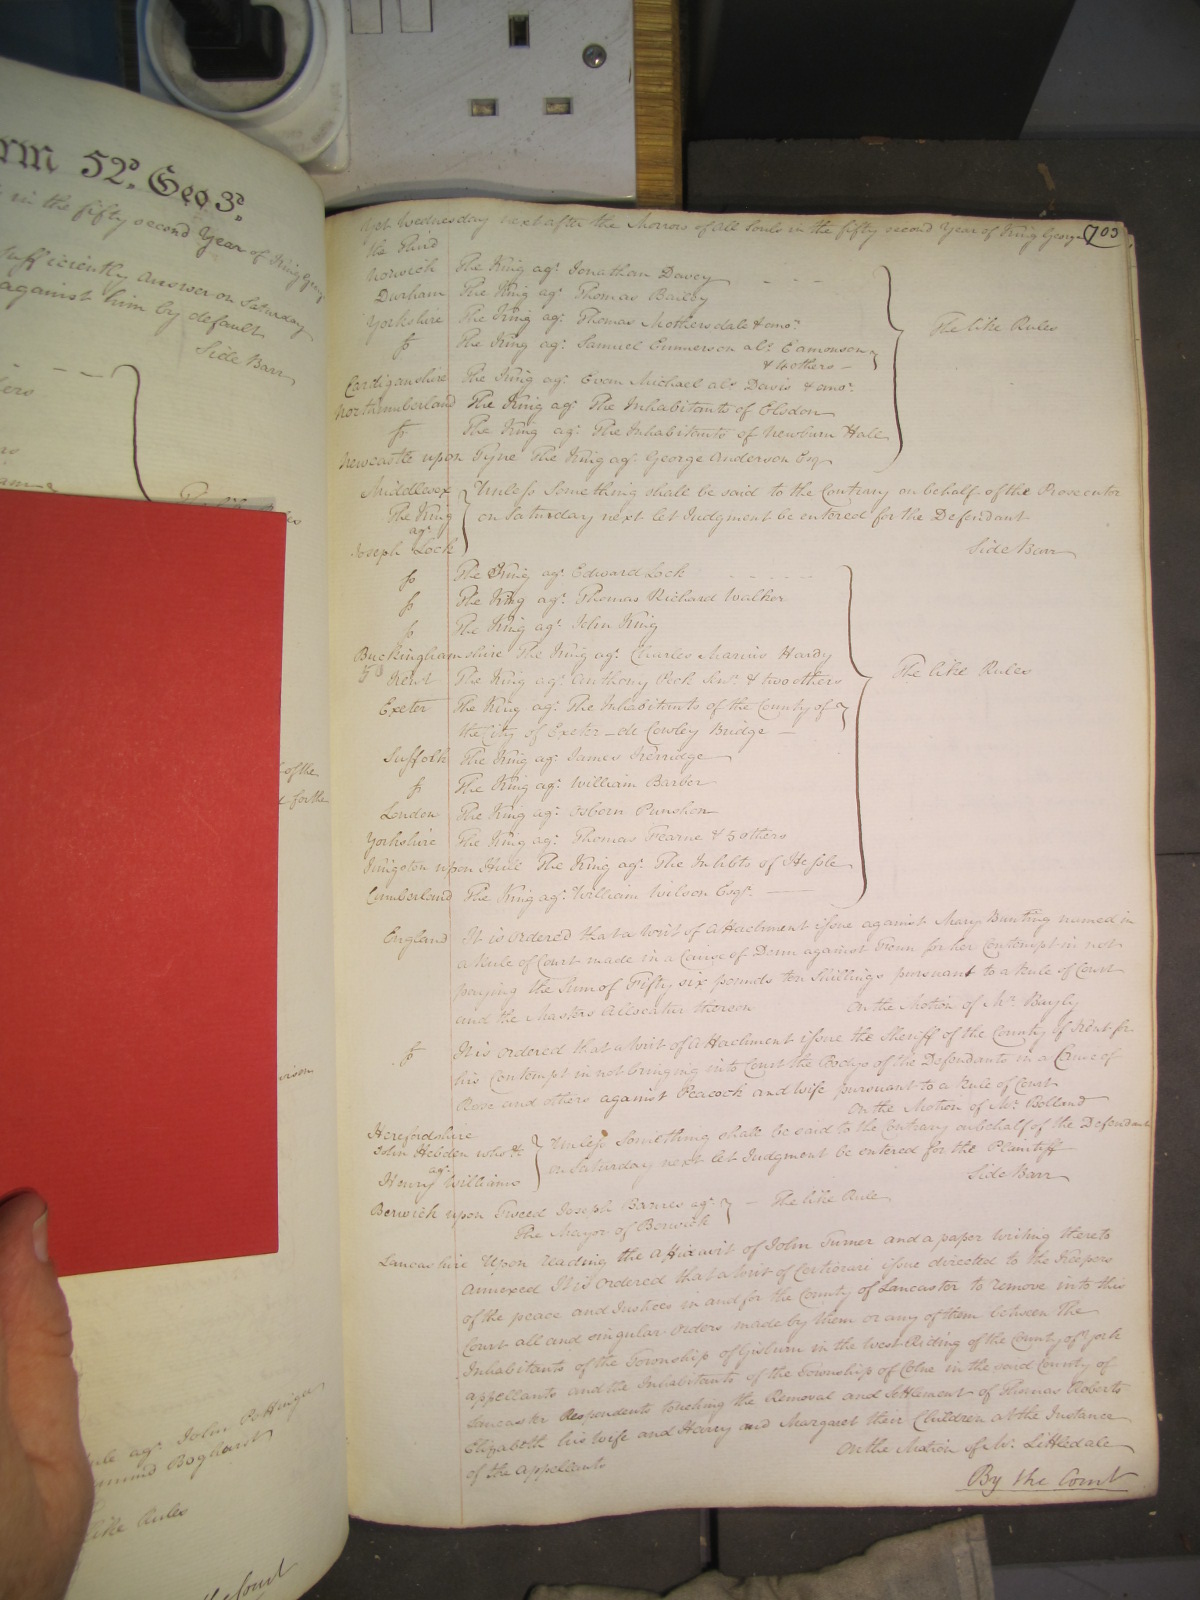 rm 52d. Geo 3d.
in the fifty second Year of King George
sufficiently answer on Saturday
against him by default
Side Barr
of the
for the
agt. John
Like Rules
the Court
Yet Wednesday next after the Morrow of All Souls in the fifty second Year of King George 703
the Third
Norwich The King agt. Jonathan Davey
Durham The King agt. Thomas Bailey
Yorkshire The King agt. Thomas Mothersdale & anor.
The like Rules
fs The King agt. Samuel Emmerson als. Eamonson
& 4 others
Cardiganshire The King agt. Evan Michael als. Davis & anor.
Northumberland The King agt. The Inhabitants of Elsdon
fs The King agt. The Inhabitants of Newburn Hall
Newcastle upon Tyne The King agt. George Anderson Esq
Middlesex Unless Something shall be said to the Contrary on behalf of the Prosecutor
The King on Saturday next let Judgment be entered for the Defendant
agt.
Joseph Lock Side Barr
fs The King agt. Edward Lock
fs The King agt. Thomas Richard Walker
fs The King agt. John King
Buckinghamshire The King agt. Charles Marius Hardy
The like Rules
Kent The King agt. Anthony Peck Senr. & two others
Exeter The King agt. The Inhabitants of the County of
the City of Exeter - de Cowley Bridge
Suffolk The King agt. James Kerridge
fs The King agt. William Barber
London The King agt. Osborn Punshon
Yorkshire The King agt. Thomas Fearne & 5 others
Kingston upon Hull The King agt. The Inhbts of Hessle
Cumberland The King agt. William Wilson Esqr.
England It is ordered that a Writ of Attachment issue against Mary Bunting named in
a Rule of Court made in a Cause of Denn against Fenn for her Contempt in not
paying the Sum of Fifty six pounds ten Shillings pursuant to a Rule of Court
and the Masters Allocatur thereon On the Motion of Mr. Bayly
fs It is ordered that a Writ of Attachment issue the Sheriff of the County of Kent for
his Contempt in not bringing into Court the Bodys of the Defendants in a Cause of
Rose and others against Peacock and Wife pursuant to a Rule of Court
On the Motion of Mr. Bolland
Herefordshire
John Hebden who &c Unless Something shall be said to the Contrary on behalf of the Defendant
agt. on Saturday next let Judgment be entered for the Plaintiff
Henry Williams Side Barr
Berwick upon Tweed Joseph Barnes agt. - The like Rule
The Mayor of Berwick
Lancashire Upon reading the Affidavit of John Turner and a paper Writing thereto
annexed It is Ordered that a Writ of Certiorari issue directed to the Keepers
of the peace and Justices in and for the County of Lancaster to remove into this
Court all and singular Orders made by them or any of them between the
Inhabitants of the Township of Gisburn in the West Riding of the County of York
appellants and the Inhabitants of the Township of Colne in the said County of
Lancaster Respondents touching the Removal and Settlement of Thomas Roberts
Elizabeth his Wife and Harry and Margaret their Children at the Instance
of the appellants On the Motion of Mr. Littledale
By the Court